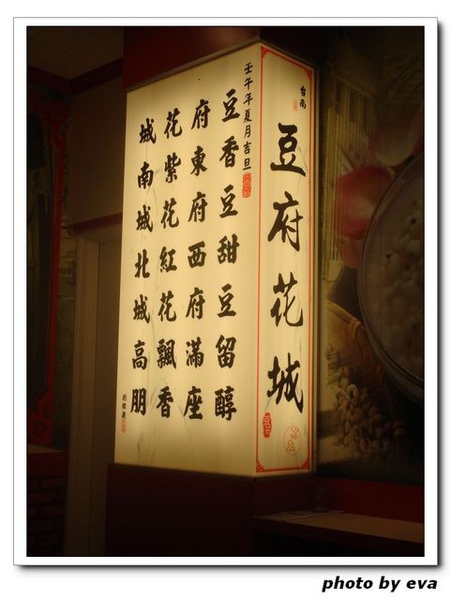 台南
豆府花城
壬午年夏月吉旦
豆香豆甜豆留醇
府東府西府滿座
花紫花紅花飄香
城南城北城高朋
photo by eva